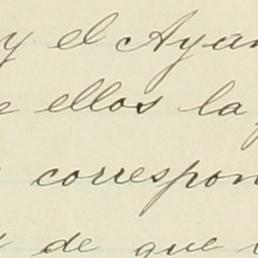 y el Ayun
e ellos la
correspon
de que